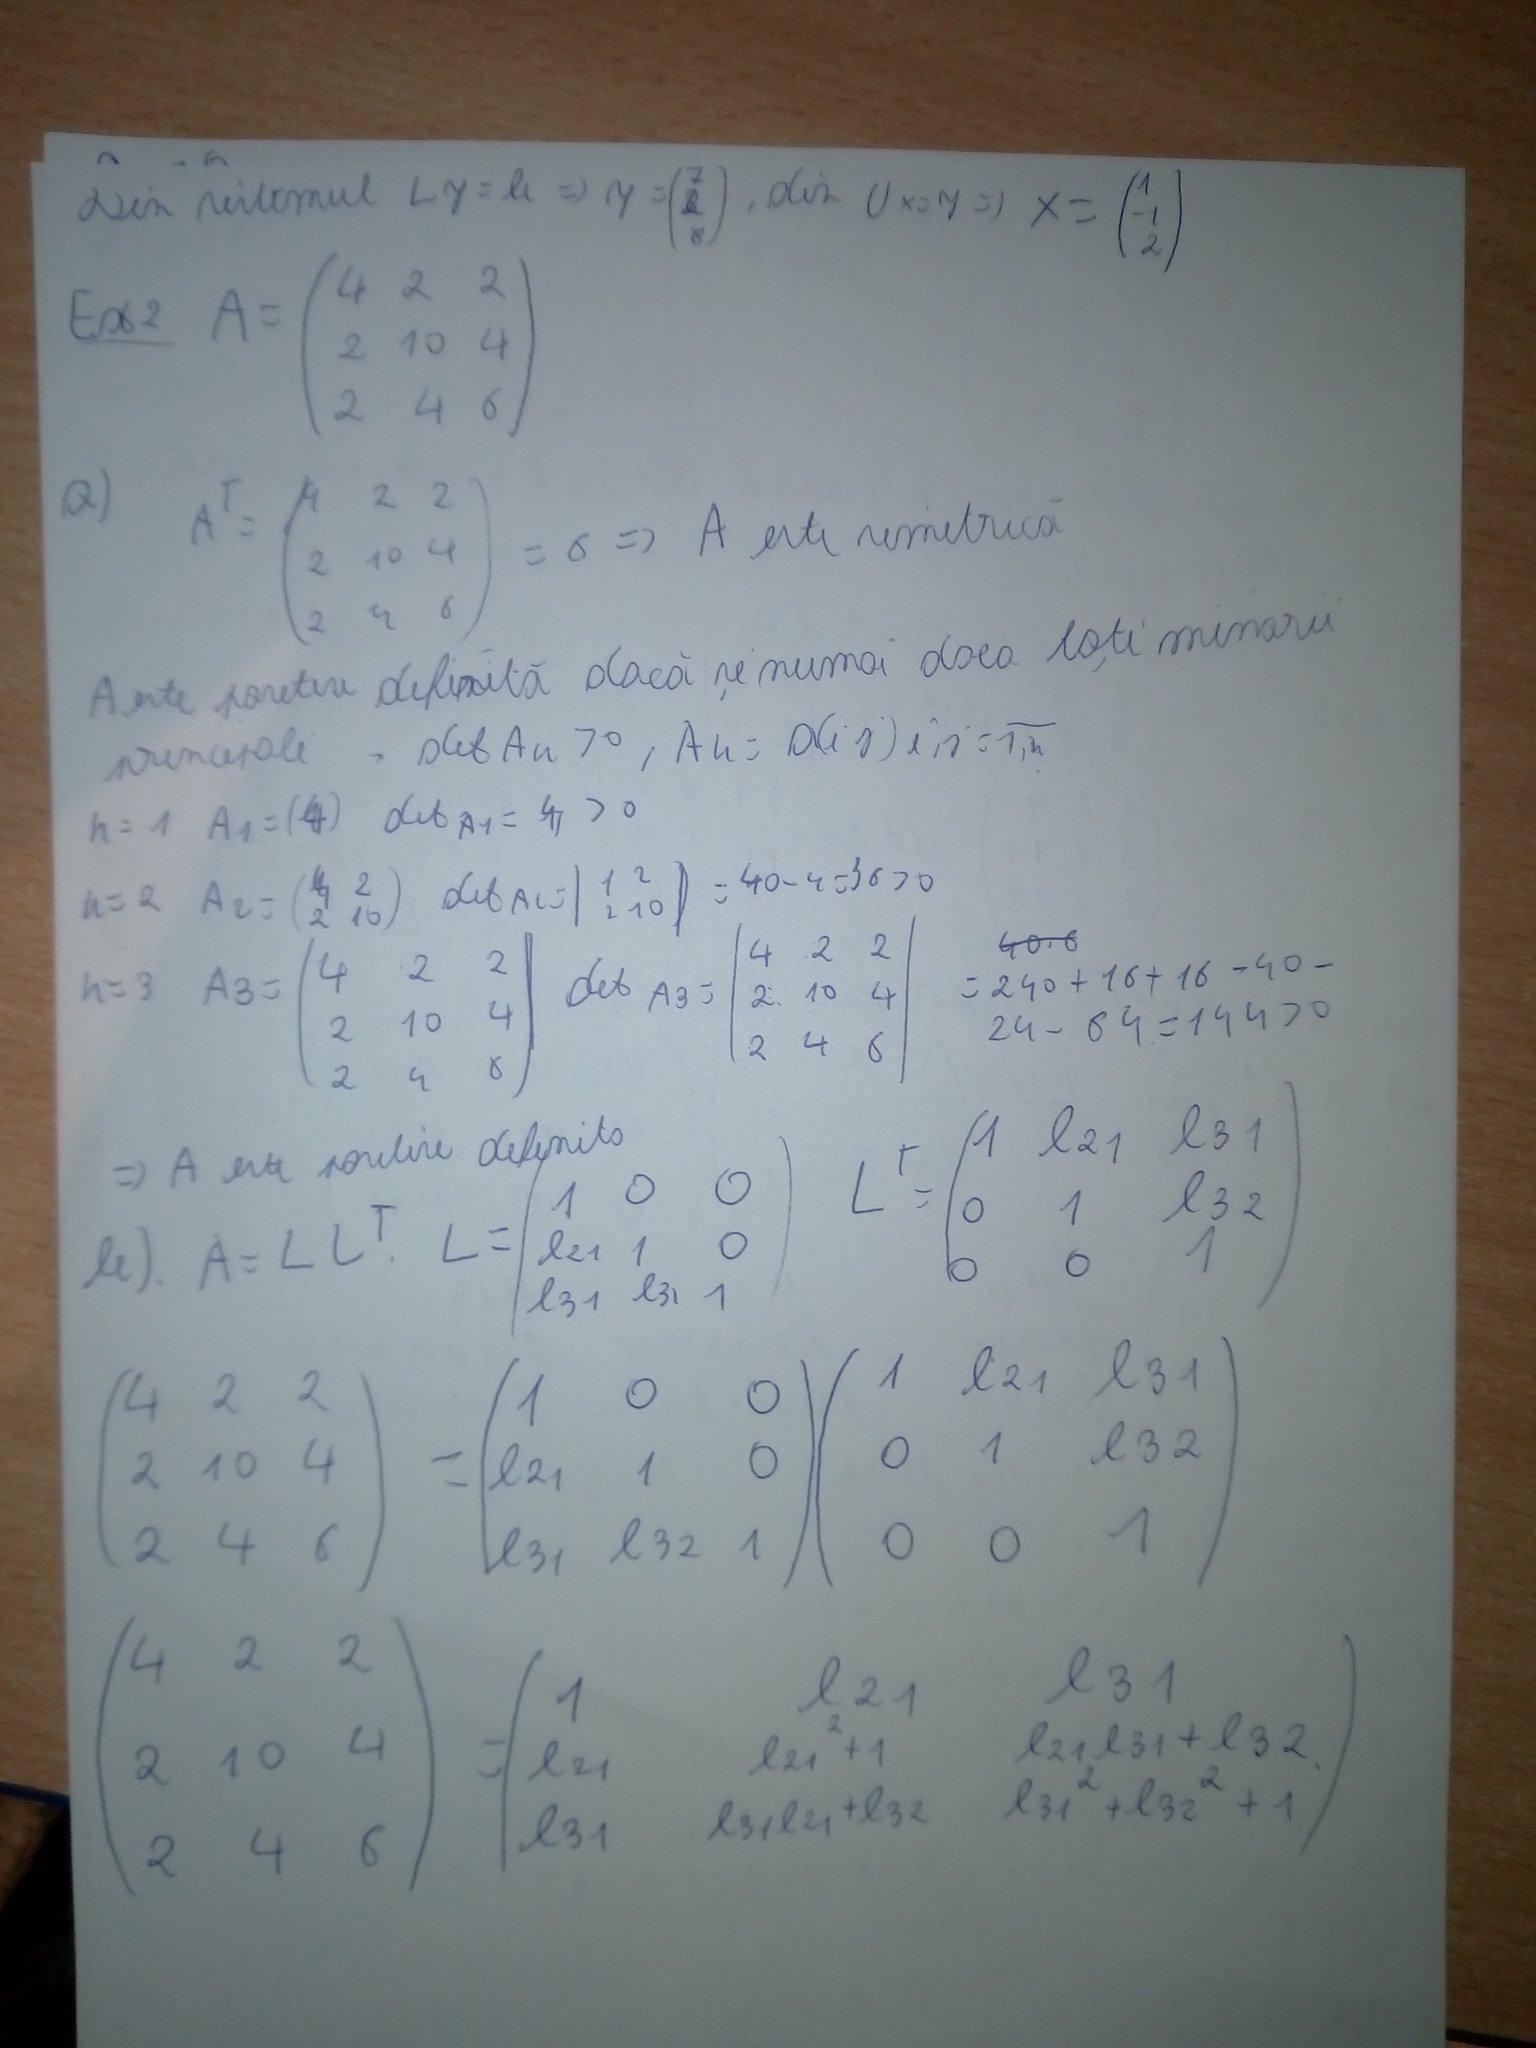 Din sistemul Ly=b => y=(7 2 8), din Ux=y => x=(1 -1 2)
Ex2 A= (4 2 2
2 10 4
2 4 6)
a) A^T= (4 2 2
2 10 4
2 4 6) = 6 => A este simetrică
A este pozitiv definită dacă și numai daca toți minorii
principali , det An >0, An = a(i j) i,j=1,n
n=1 A1=(4) det A1= 4 >0
n=2 A2=(4 2
2 10) det A2=|1 2
2 10| =40-4=36>0
n=3 A3= (4 2 2
2 10 4
2 4 6) det A3= |4 2 2
2 10 4
2 4 6| 40.6
=240+16+16-40-
24-64=144>0
=> A este pozitiv definita
b). A=LL^T. L= (1 0 0
l21 1 0
l31 l32 1) L^T= (1 l21 l31
0 1 l32
0 0 1)
(4 2 2
2 10 4
2 4 6) = (1 0 0
l21 1 0
l31 l32 1) (1 l21 l31
0 1 l32
0 0 1)
(4 2 2
2 10 4
2 4 6) = (1 l21 l31
l21 l21²+1 l21l31+l32
l31 l31l21+l32 l31²+l32²+1)